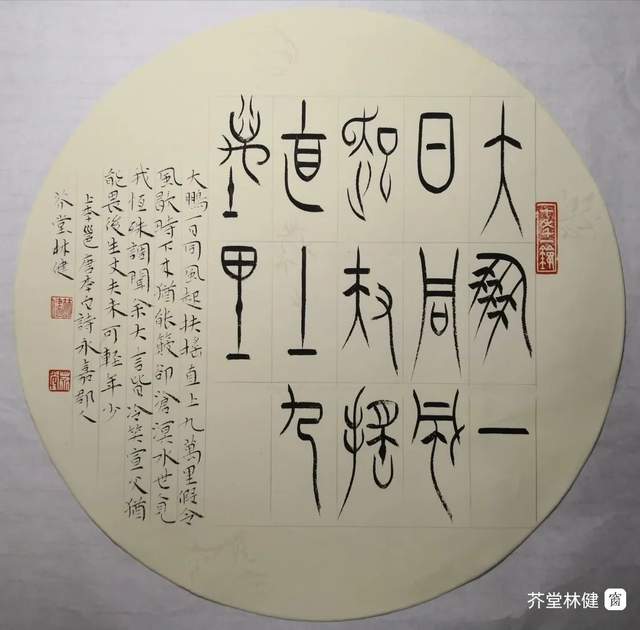 大鵬一
日同風
起扶搖
直上九
萬里
大鵬一日同風起扶搖直上九萬里假令
風歇時下来猶能簸卻滄溟水世人見
我恆殊調聞余大言皆冷笑宣父猶
能畏後生丈夫未可輕年少
上李邕唐李白詩永嘉郡人
芥堂林健
芥堂林健